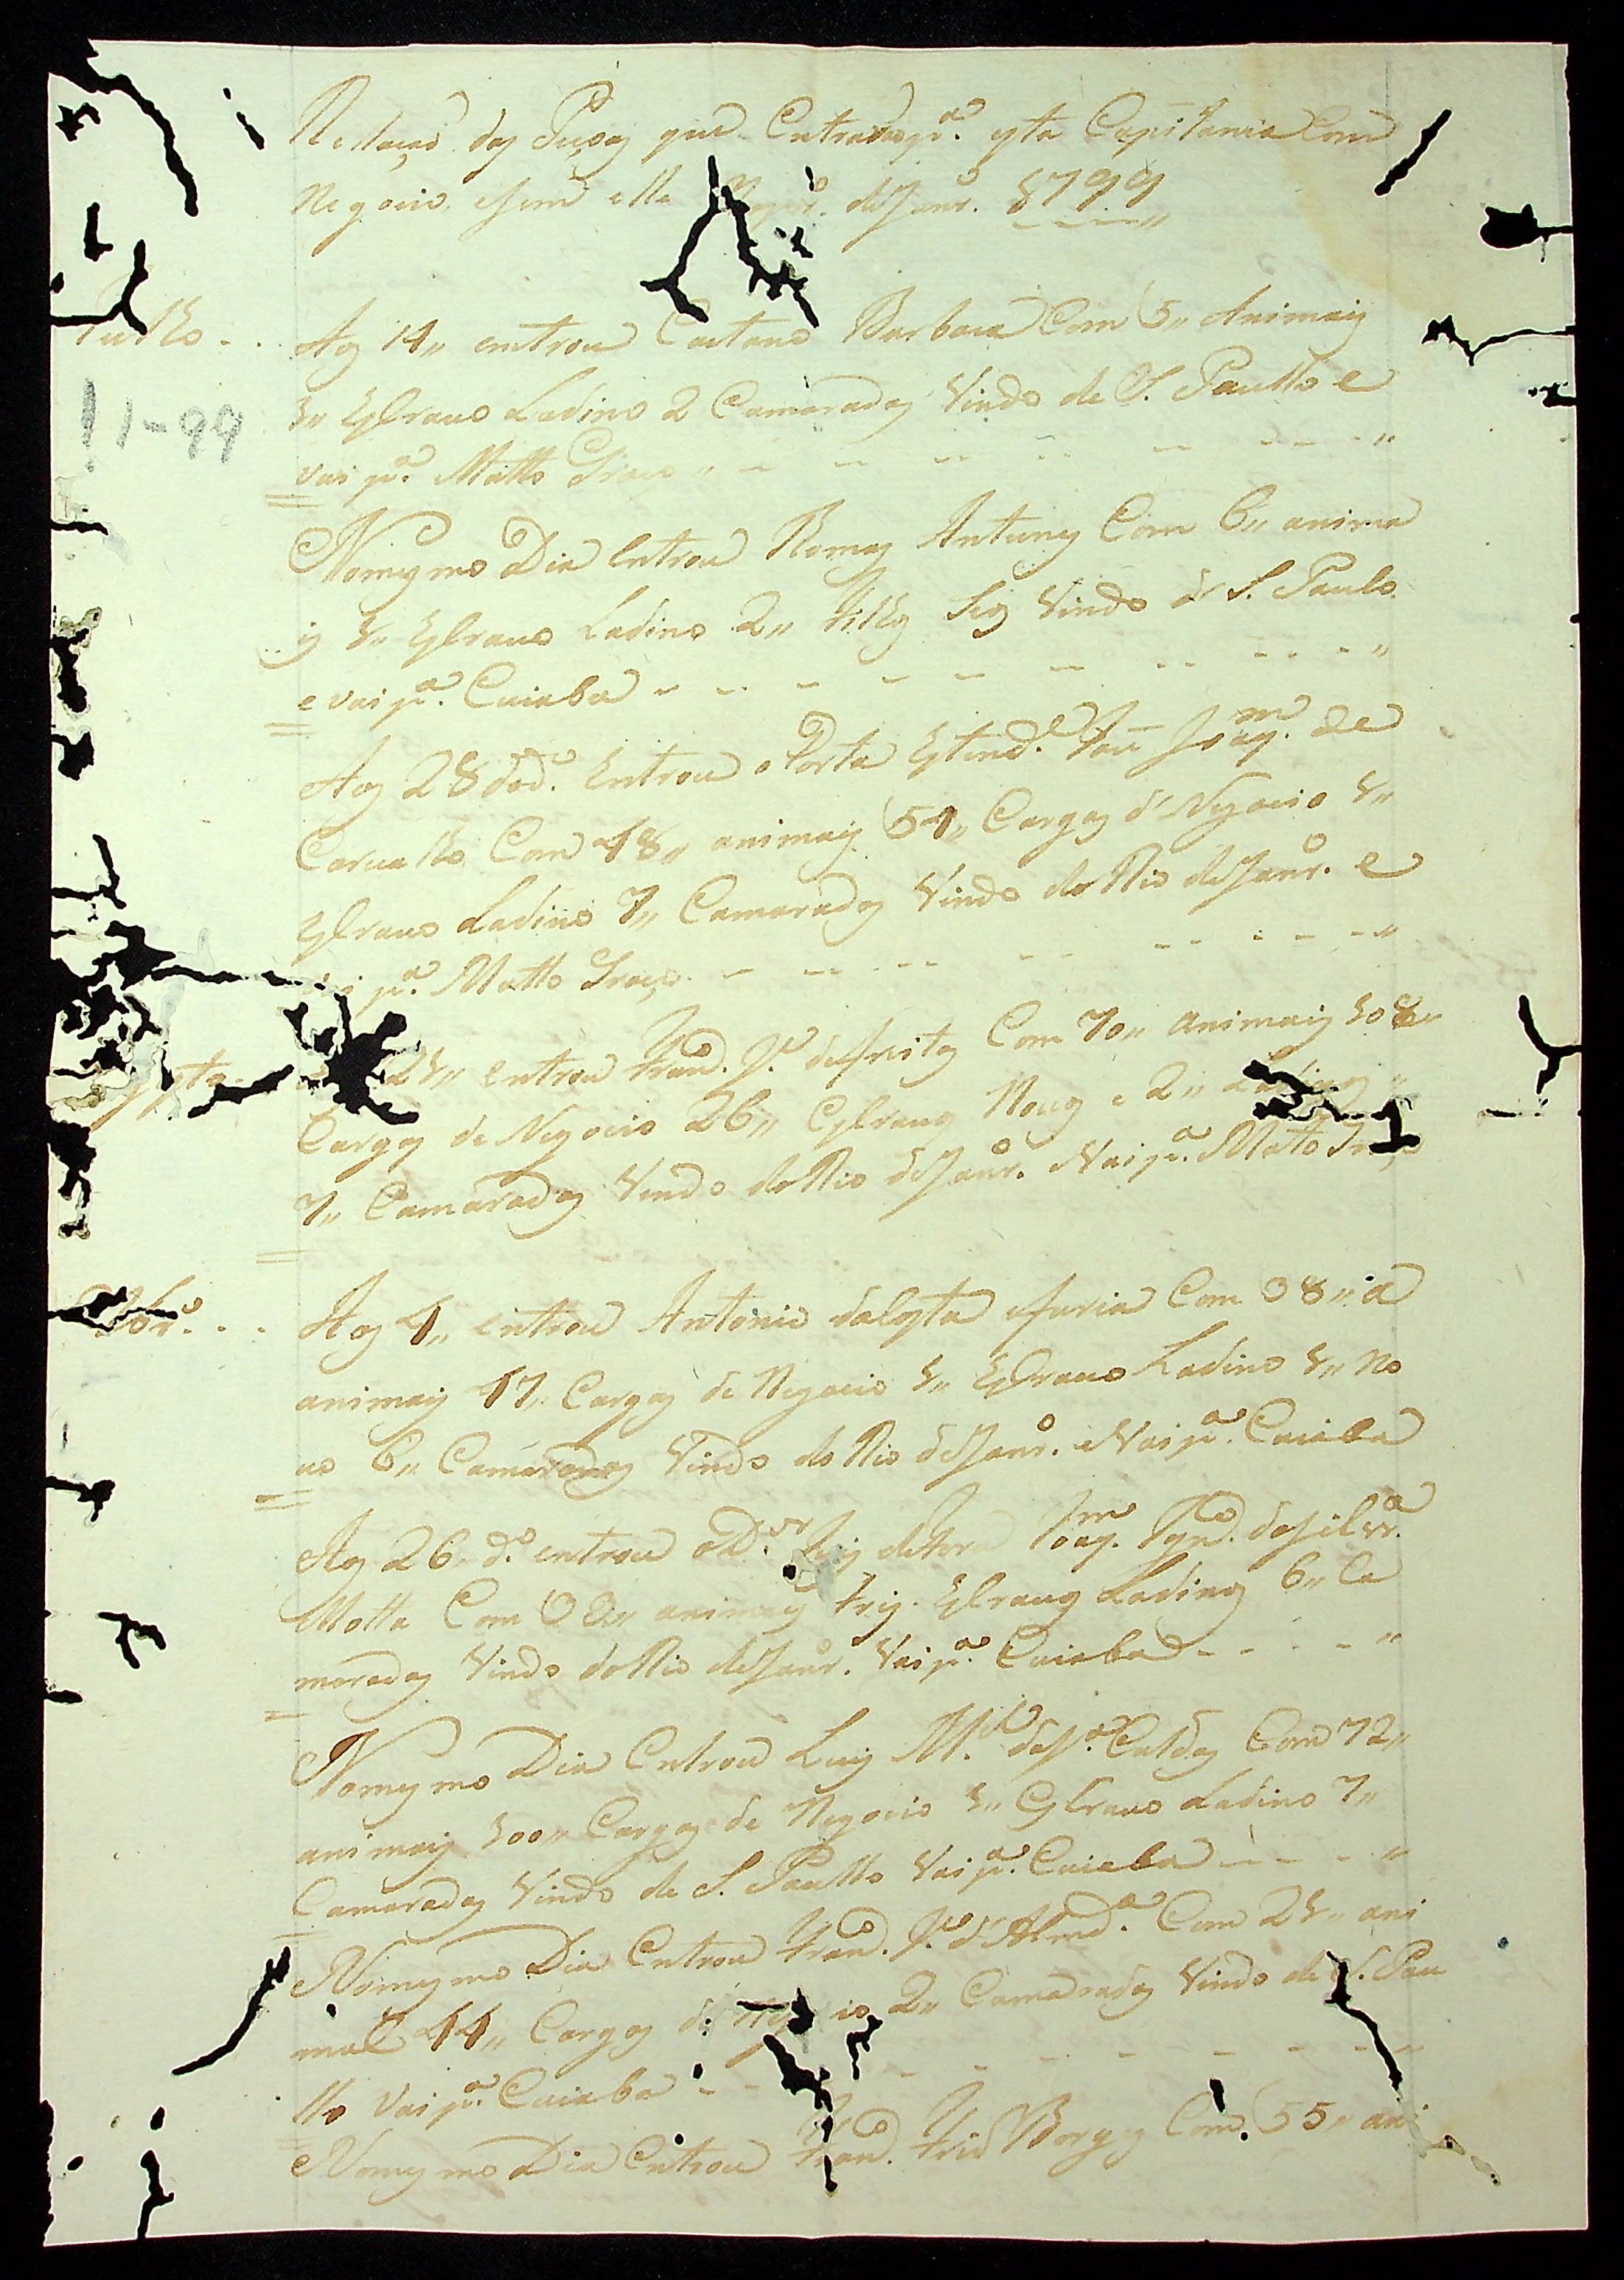 Rellação das Pesoas que Entrarão pª. esta Capitania Com
Negocio, e sem elle de Janrº. 1799
Julho
Aos 14,, entrou Caetano Barboza Com 5,, Animais
11-99
1,, Esbravo Ladino 2 Camaradas Vindo de S. Paullo e
vai pª. Matto Groço
No mesmo Dia entrou Romas Antunes Com 6,, anima
is 1,, Esbravo Ladino 2,, filhos Seos Vindo de S. Paulo
e vai pª. Cuiaba
Aos 28 do dº. Entrou o Porta Estendᵉ. Joaqᵐ. de
Carvalho Com 48,, animais 54,, Cargas de Negocio 1,,
Esbravo Ladino 7,, Camaradas Vindo do Rio de Janrº. e
vai pª. Matto Groço
Agosto
21,, entrou Francº. Pº. de Freitas Com 70,, animais 108,,
Cargas de Negocio 26,, Esbravos Novos e 2,, Ladinos
7,, Camaradas Vindo do Rio de Janrº. e Vai pª. Matto Groço
Aos 4,, entrou Antonio da Costa e faria Com 38,, a
animais 47,, Cargas de Negocio 1,, Esbravo Ladino 1,, no
vo 6,, Camaradas Vindo do Rio de Janrº. e Vai pª. Cuiaba
Aos 26,, dº. entrou o Dºʳ Juis de fora Joaqᵐ. Ignº. da Silvª.
Motta Com animais tris Esbravos Ladinos 6,, Ca
maradas Vindo do Rio de Janrº. Vai pª. Cuiaba
No mesmo Dia Entrou Luis Mᵉˡ da Sª. Caldas Com 72,,
animais 100,, Cargas de Negocio 1,, Esbravo Ladino 7,,
Camaradas Vindo de S. Paullo Vai pª. Cuiaba
No mesmo Dia Entrou Francº. Pº. de Almdª. Com 21,, ani
mal 44,, Cargas de Negocio 2,, Camaradas Vindo de S. Pau
llo Vai pª. Cuiaba
No mesmo Dia Entrou Francº. Borges Com 55,, ani